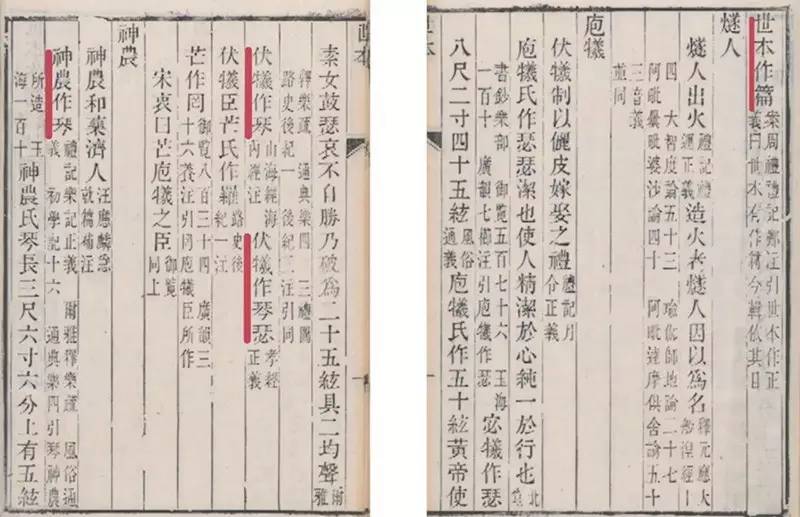 世本作篇 案周禮禮記鄭注引世本作正義曰世本有作篇今輯依其目
燧人
燧人出火 禮記禮運正義 造火者燧人因以爲名 釋元應大般涅槃經
四 大智度論五十三 瑜伽師地論二十七
阿毗曇毗婆沙論四十 阿毗達摩俱舍論五十
三音義
並同
庖犧
伏犧制以儷皮嫁娶之禮 禮記月令正義
庖犧氏作瑟瑟潔也使人精潔於心純一於行也 北堂
書鈔樂部 御覽五百七十六 玉海一百十 廣韻七櫛注引庖犧作瑟 宓犧作瑟
八尺二寸四十五絃 風俗通義 庖犧氏作五十絃黃帝使
素女鼓瑟哀不自勝乃破爲二十五絃具二均聲 爾雅
釋樂疏 通典樂四 三禮圖
路史後紀一 後紀二注引同
伏犧作琴 山海經海內經注 伏犧作琴瑟 孝經正義
伏犧臣芒氏作羅 路史後紀一注
芒作罔 御覽八百三十四 廣韻三十六養注引同庖犧臣所作
宋衷曰芒庖犧之臣 御覽同上
神農
神農和藥濟人 應麟急就篇補注
神農作琴 禮記樂記正義 爾雅釋樂疏 風俗通義 初學記十六 通典樂四引琴神農
所造 玉海一百十 神農氏琴長三尺六寸六分上有五絃